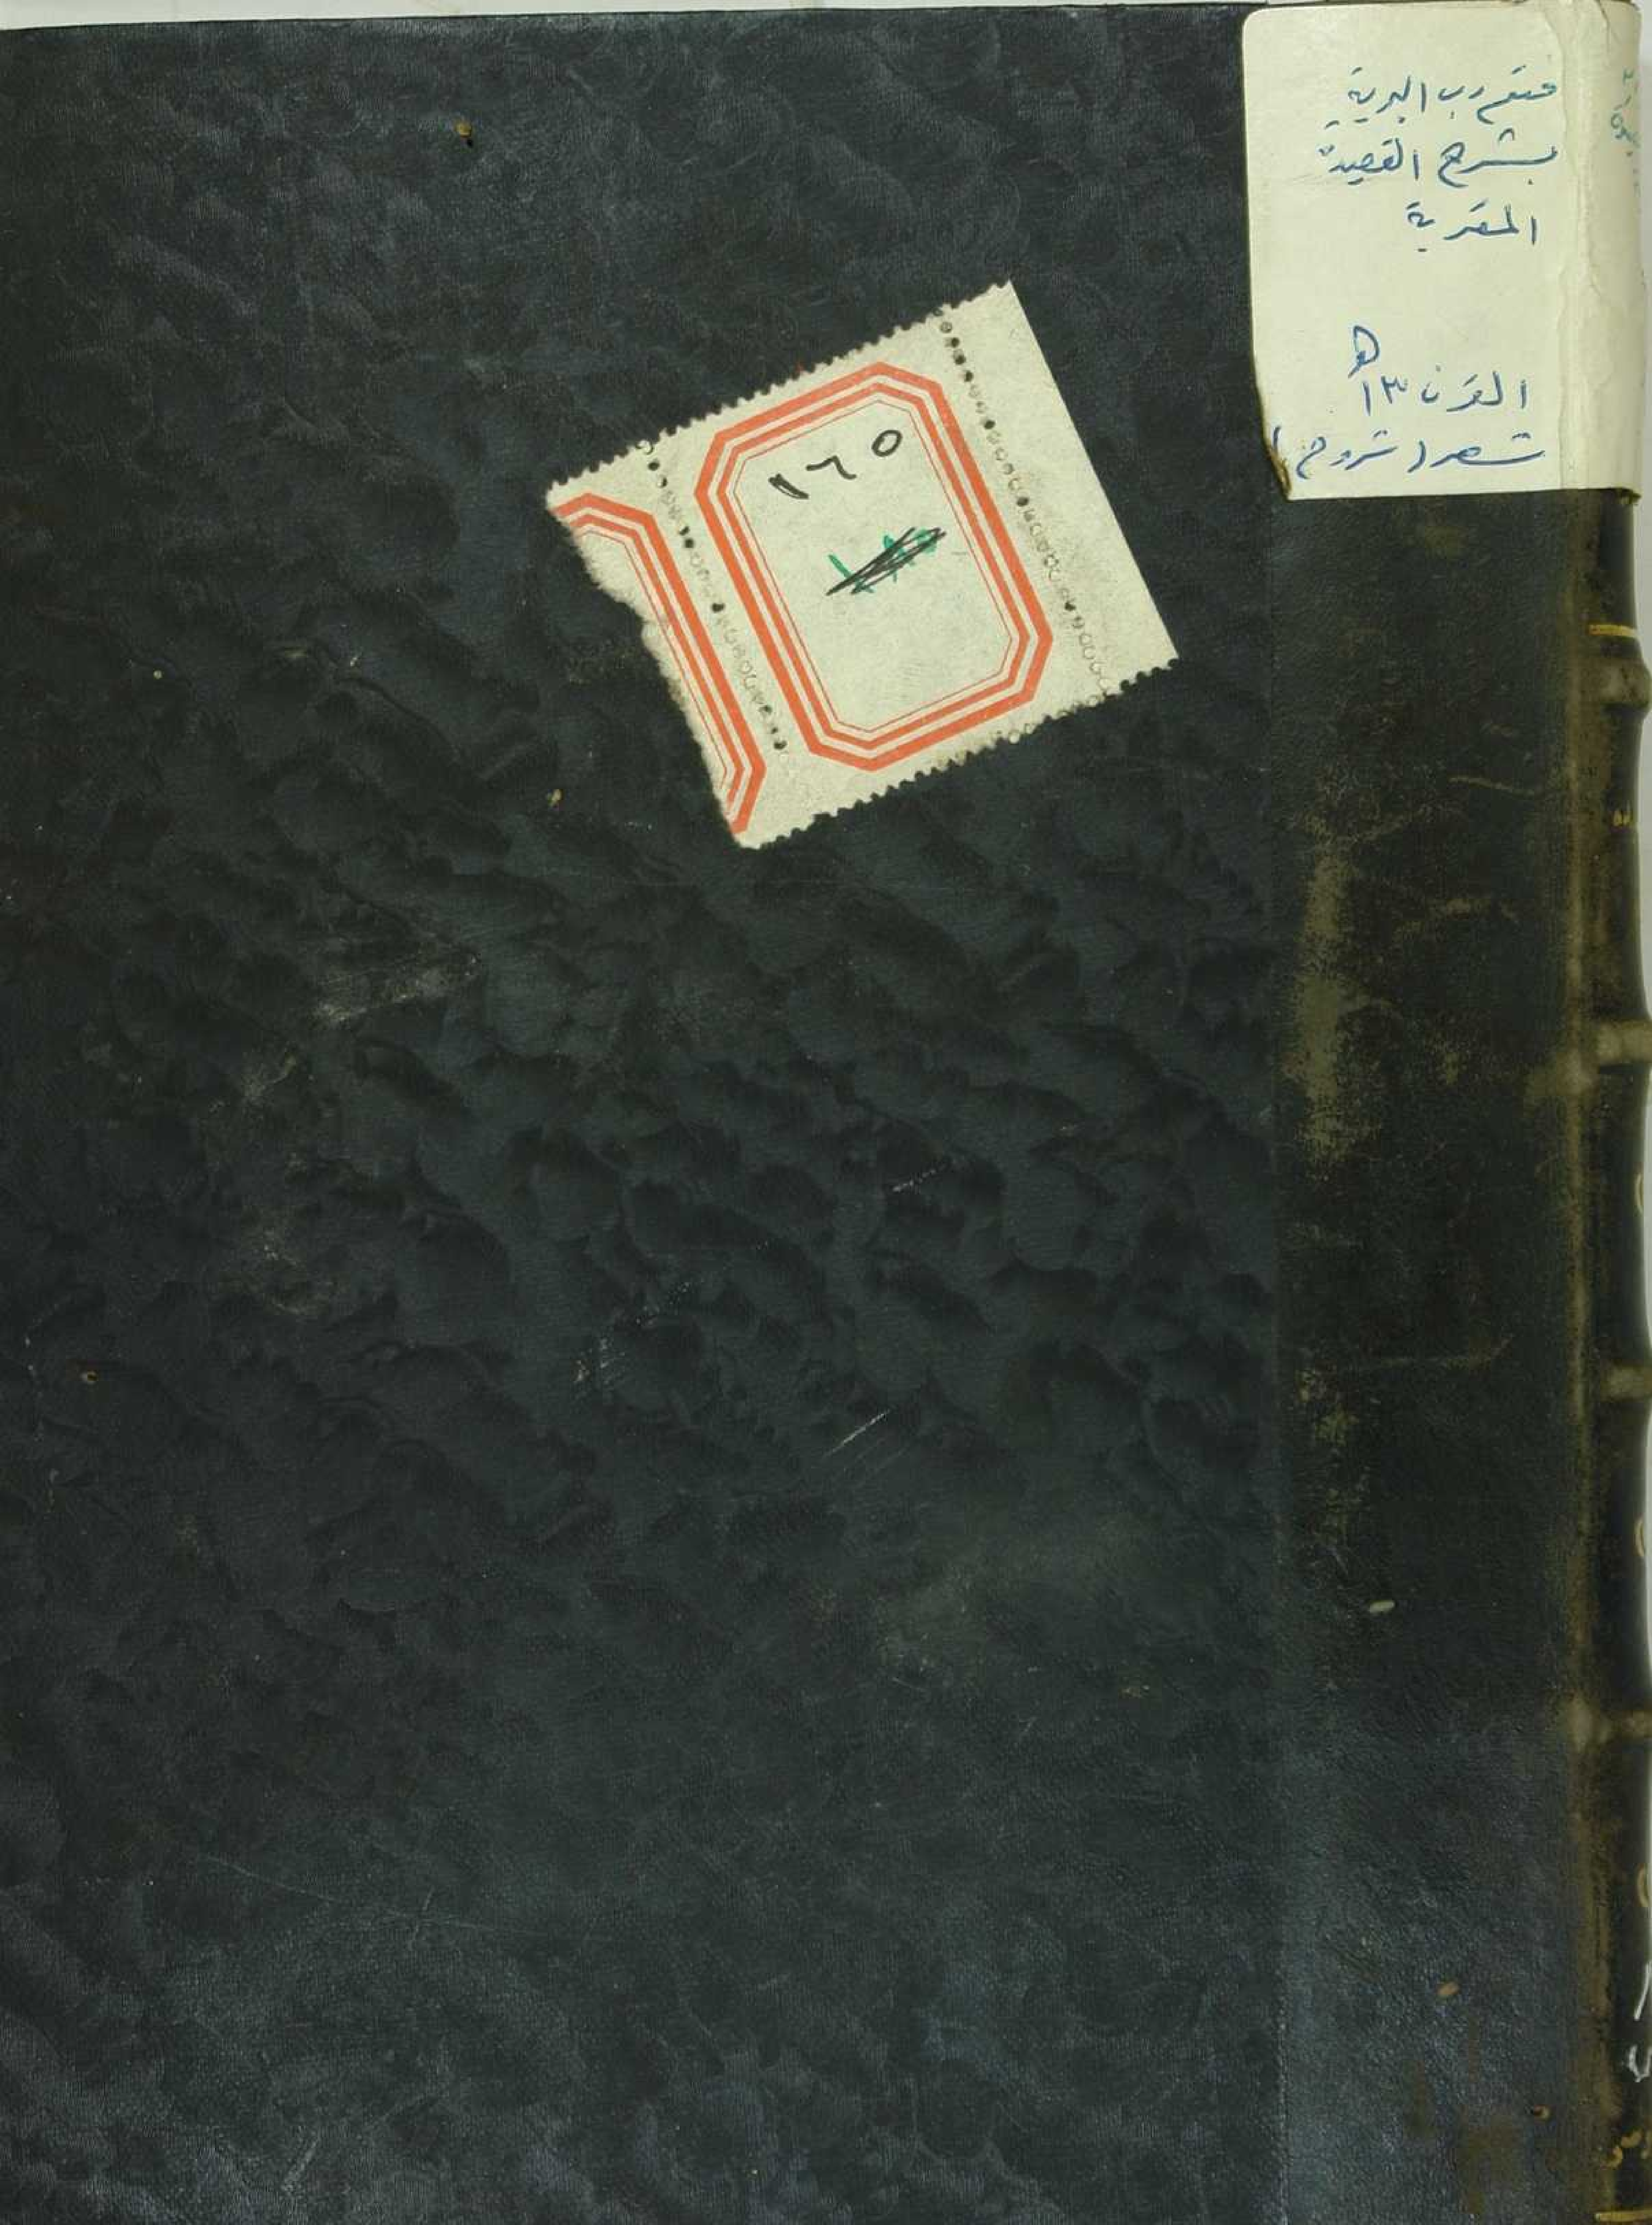 فتح رب البرية
بشرح القصيدة
المقرية
القرن ١٣ هـ
شعر (شروح)
١٦٥